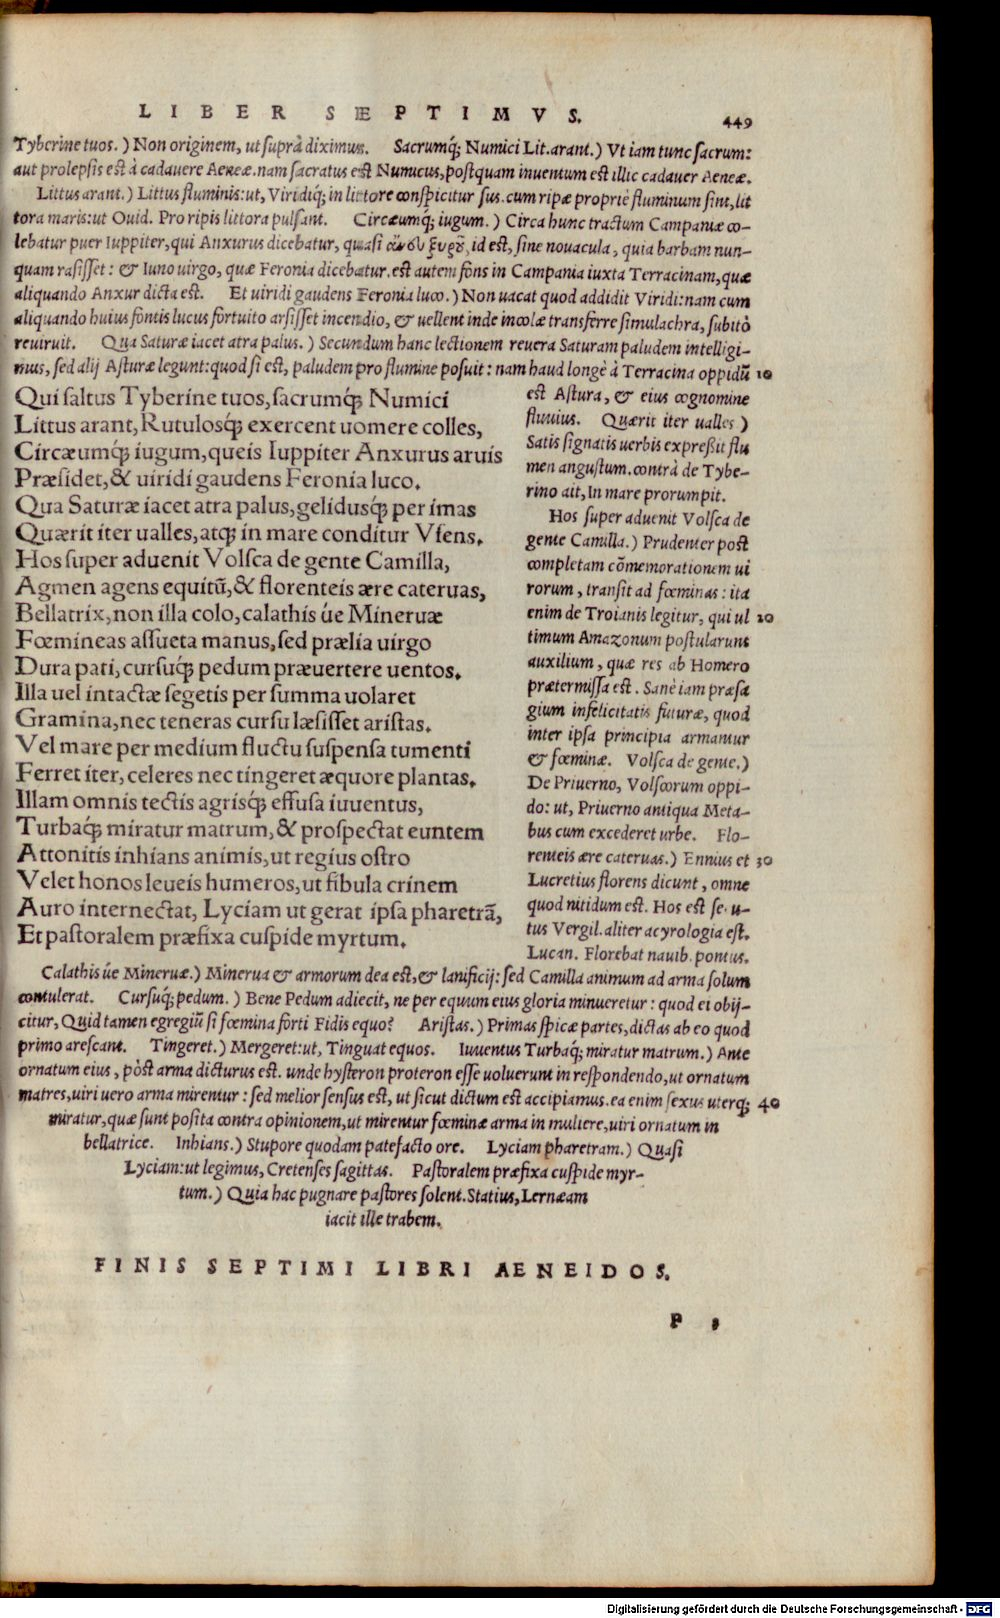 LIBER SEPTIMVS. 449
Tyberine tuos. ) Non originem, ut suprà diximus. Sacrumq́; Numici Lit.arant.) Vt iam tunc sacrum:
aut prolepsis est à cadauere Aeneæ.nam sacratus est Numicus,postquam inuentum est illic cadauer Aeneæ.
Littus arant.) Littus fluminis:ut, Viridiq́; in littore conspicitur sus.cum ripæ propriè fluminum sint,lit
tora maris:ut Ouid. Pro ripis littora pulsant. Circæumq́; iugum. ) Circa hunc tractum Campaniæ co-
lebatur puer Iuppiter,qui Anxurus dicebatur, quasi ἄνευ ξυροῦ, id est, sine nouacula, quia barbam nun-
quam rasisset: & Iuno uirgo, quæ Feronia dicebatur.est autem fons in Campania iuxta Terracinam,quæ
aliquando Anxur dicta est. Et uiridi gaudens Feronia luco.) Non uacat quod addidit Viridi:nam cum
aliquando huius fontis lucus fortuito arsisset incendio, & uellent inde incolæ transferre simulachra, subitò
reuiruit. Qua Saturæ iacet atra palus. ) Secundum hanc lectionem reuera Saturam paludem intelligi-
mus, sed alij Asturæ legunt:quod si est, paludem pro flumine posuit: nam haud longè à Terracina oppidũ 10
Qui saltus Tyberine tuos, sacrumq́; Numici
Littus arant, Rutulosq́; exercent uomere colles,
Circæumq́; iugum,queis Iuppiter Anxurus aruis
Præsidet,& uiridi gaudens Feronia luco.
Qua Saturæ iacet atra palus,gelidusq́; per imas
Quærit iter ualles,atq; in mare conditur Vfens.
Hos super aduenit Volsca de gente Camilla,
Agmen agens equitũ,& florenteis ære cateruas,
Bellatrix,non illa colo,calathis úe Mineruæ
Fœmineas assueta manus,sed prælia uirgo
Dura pati,cursuq́; pedum præuertere uentos.
Illa uel intactæ segetis per summa uolaret
Gramina,nec teneras cursu læsisset aristas.
Vel mare per medium fluctu suspensa tumenti
Ferret iter, celeres nec tingeret æquore plantas.
Illam omnis tectis agrisq́; effusa iuuentus,
Turbaq́; miratur matrum, & prospectat euntem
Attonitis inhians animis,ut regius ostro
Velet honos leueis humeros,ut fibula crinem
Auro internectat, Lyciam ut gerat ipsa pharetrã,
Et pastoralem præfixa cuspide myrtum.
est Astura, & eius cognomine
fluuius. Quærit iter ualles )
Satis signatis uerbis expreßit flu
men angustum.contrà de Tybe-
rino ait,In mare prorumpit.
Hos super aduenit Volsca de
gente Camilla.) Prudenter post
completam cõmemorationem ui
rorum, transit ad fœminas: ita
enim de Troianis legitur, qui ul 20
timum Amazonum postularunt
auxilium, quæ res ab Homero
prætermissa est. Sanè iam præsa
gium infelicitatis futuræ, quod
inter ipsa principia armantur
& fœminæ. Volsca de gente.)
De Priuerno, Volscorum oppi-
do: ut, Priuerno antiqua Meta-
bus cum excederet urbe. Flo-
renteis ære cateruas.) Ennius et 30
Lucretius florens dicunt, omne
quod nitidum est. Hos est secu-
tus Vergil.aliter acyrologia est.
Lucan. Florebat nauib. pontus.
Calathis úe Mineruæ.) Minerua & armorum dea est,& lanificij: sed Camilla animum ad arma solum
contulerat. Cursuq́; pedum. ) Bene Pedum adiecit, ne per equum eius gloria minueretur: quod ei obij-
citur, Quid tamen egregiũ si fœmina forti Fidis equo? Aristas.) Primas spicæ partes,dictas ab eo quod
primo arescant. Tingeret.) Mergeret:ut, Tinguat equos. Iuuentus Turbaq́; miratur matrum.) Ante
ornatum eius, pòst arma dicturus est. unde hysteron proteron esse uoluerunt in respondendo,ut ornatum
matres,uiri uero arma mirentur: sed melior sensus est, ut sicut dictum est accipiamus.ea enim sexus uterq; 40
miratur,quæ sunt posita contra opinionem,ut mirentur fœminæ arma in muliere,uiri ornatum in
bellatrice. Inhians.) Stupore quodam patefacto ore. Lyciam pharetram.) Quasi
Lyciam:ut legimus, Cretenses sagittas. Pastoralem præfixa cuspide myr-
tum.) Quia hac pugnare pastores solent.Statius,Lernæam
iacit ille trabem.
FINIS SEPTIMI LIBRI AENEIDOS.
P
Digitalisierung gefördert durch die Deutsche Forschungsgemeinschaft - DFG